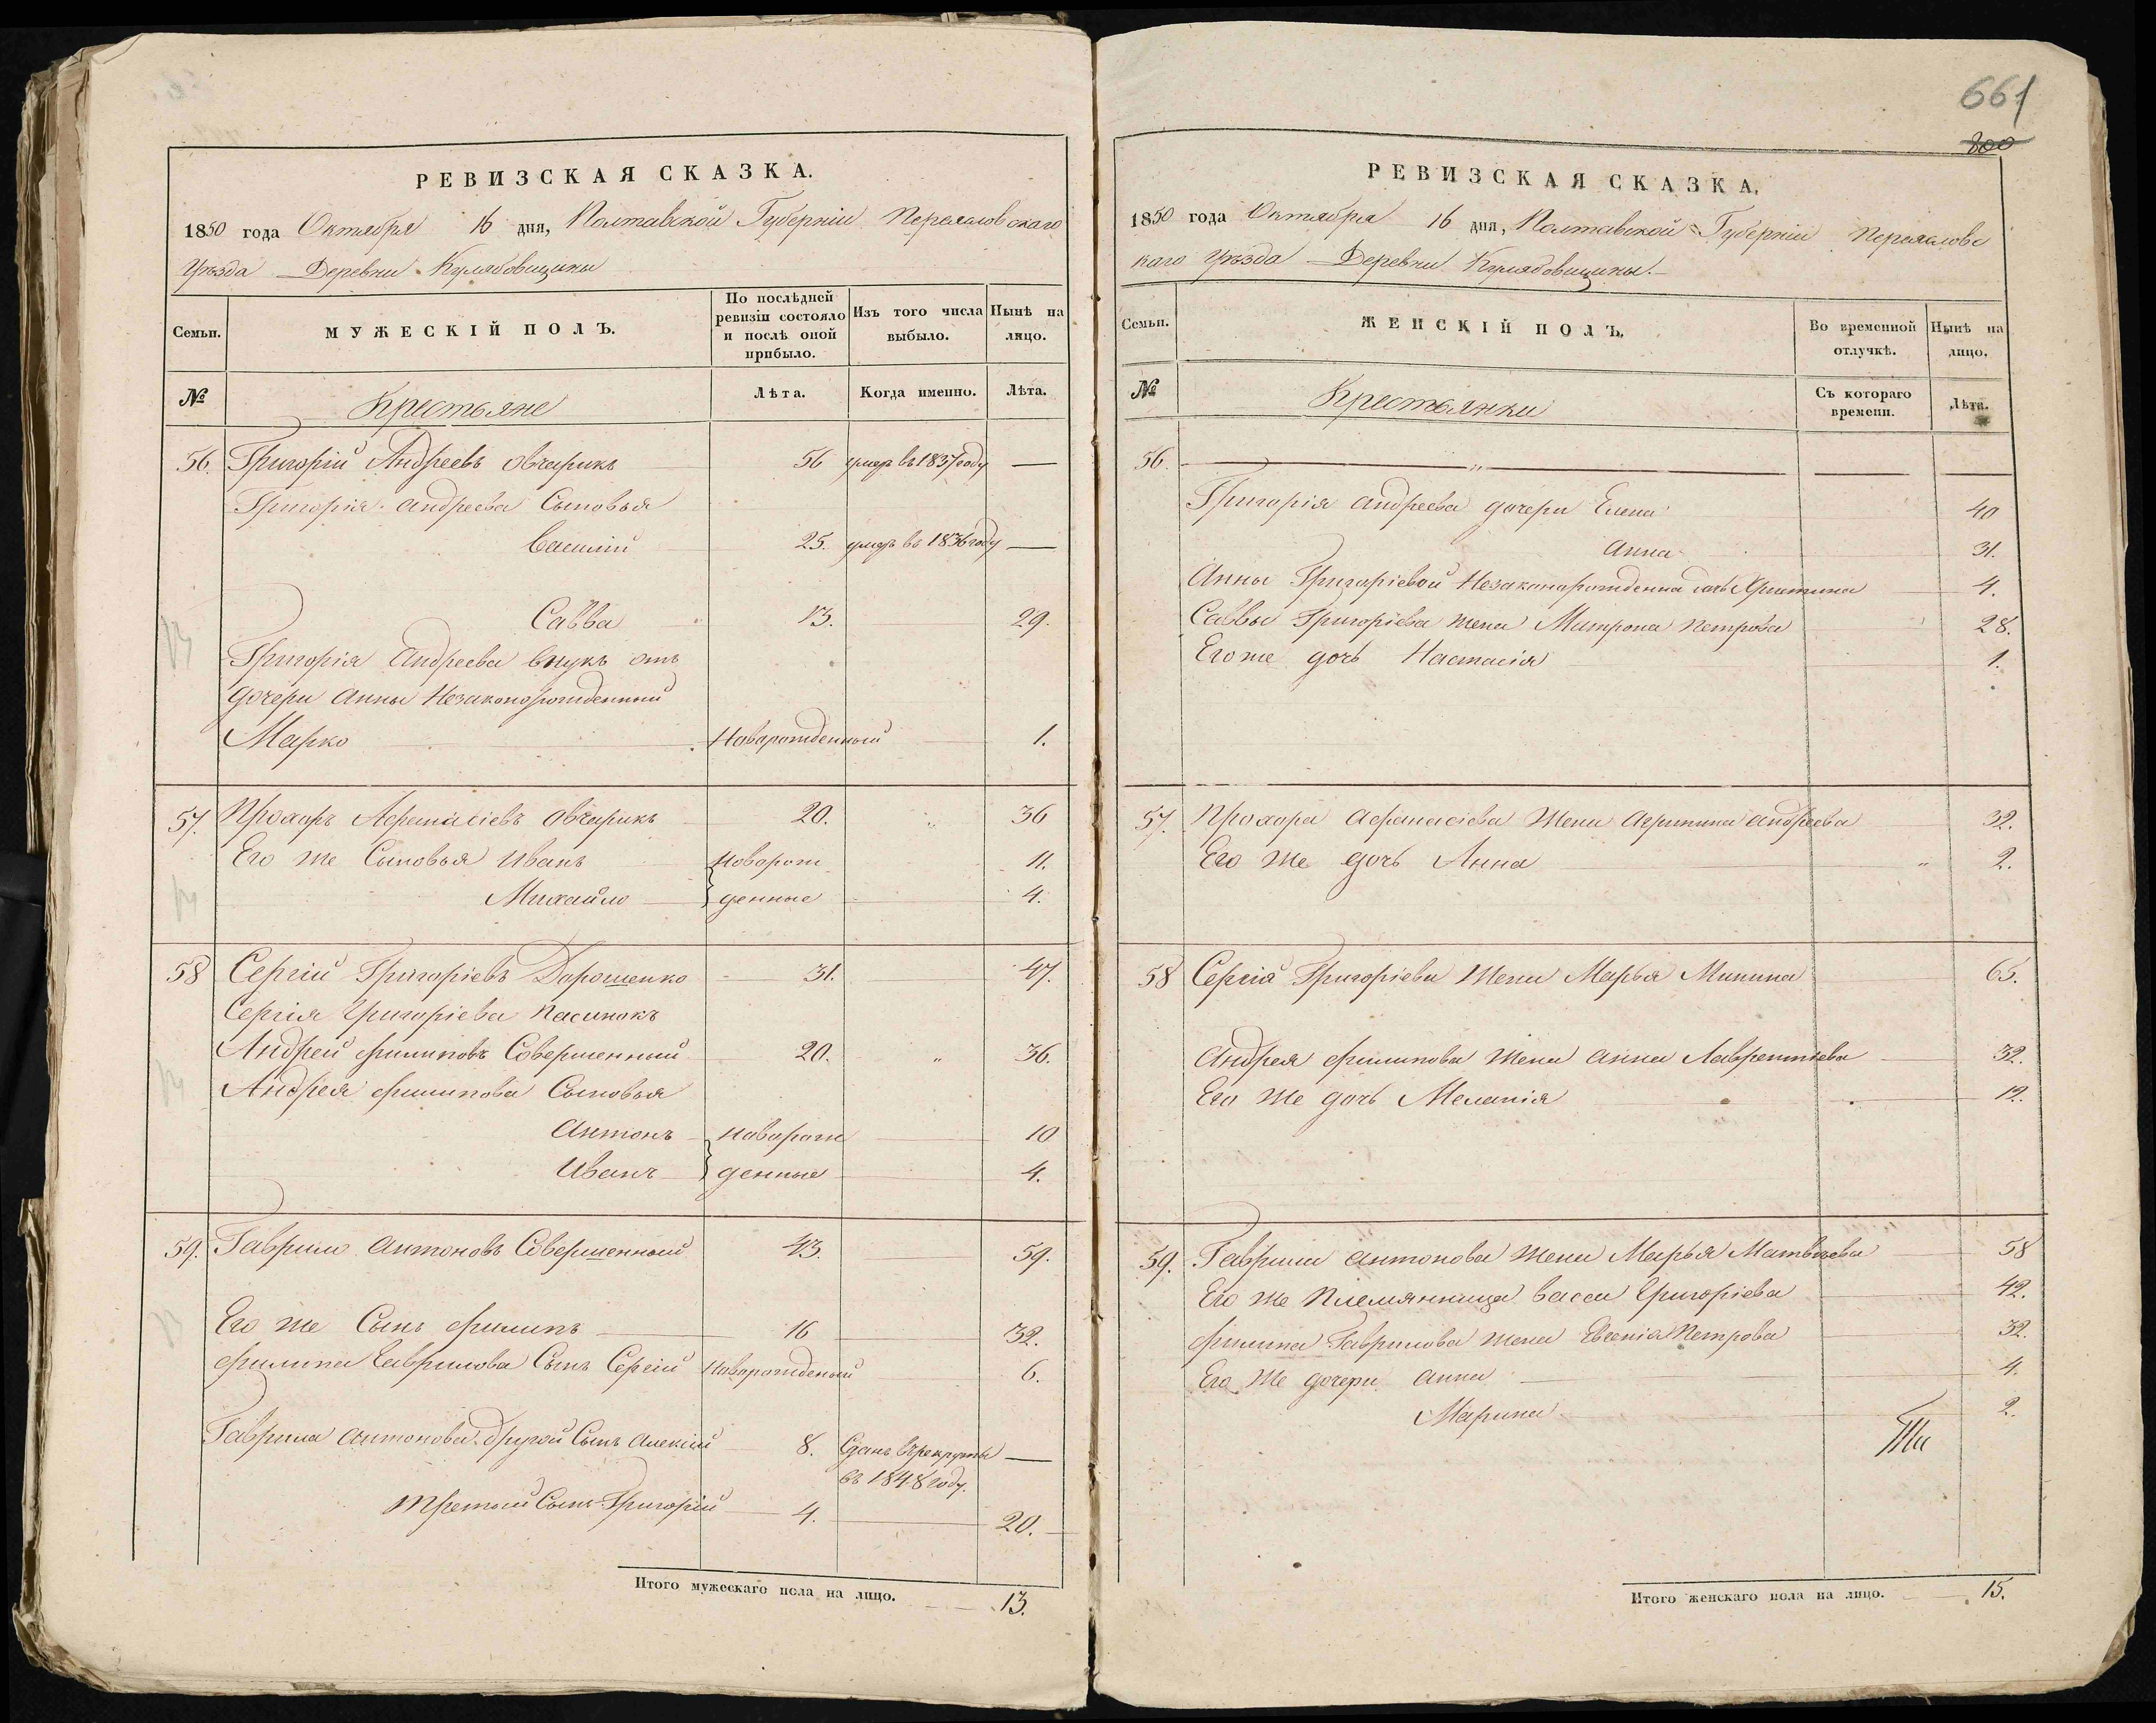 РЕВИЗСКАЯ СКАЗКА.
1850 года Октября 16 дня, Полтавской Губерніи Переяловскаго
Уѣзда Деревни Кулябовщины
Семьи.
МУЖЕСКІЙ ПОЛЪ.
По послѣдней ревизіи состояло и послѣ оной прибыло.
Изъ того числа выбыло.
Нынѣ на лицо.
№
Крестьяне
Лѣта.
Когда именно.
Лѣта.
56. Григорій Андреевъ Овчарикъ 56 умеръ въ 1837 году —
Григорія Андреева Сыновья
Василій 25. умеръ въ 1836 году —
Савва 13. 29.
Григорія Андреева внукъ отъ
дочери Анны Незаконорожденный
Марко Новорожденный 1.
57. Прохоръ Афанасіевъ Овчарикъ 20. „ 36
Его же Сыновья Иванъ Новорож 11.
Михайло денные 4.
58 Сергій Григоріевъ Дорошенко 31. 47.
Сергія Григоріева Пасынокъ
Андрей Филиповъ Совершенный 20. „ 36.
Андрея Филипова Сыновья
Антонъ Новорож 10
Иванъ денные 4.
59. Гаврило Антоновъ Совершенный 43. 59.
Его же Сынъ Филипъ 16 32.
Филипа Гаврилова Сынъ Сергій Новорожденый 6.
Гаврила Антонова другой Сынъ Алексій 8. Сданъ въ рекруты —
въ 1848 году.
третий Сынъ Григорій 4. 20.
Итого мужескаго пола на лицо. 13.
661
800
РЕВИЗСКАЯ СКАЗКА.
1850 года Октября 16 дня, Полтавской Губерніи Переяловс
каго Уѣзда Деревни Кулябовщины.
Семьи.
ЖЕНСКІЙ ПОЛЪ.
Во временной отлучкѣ.
Нынѣ на лицо.
№
Крестьянки
Съ котораго времени.
Лѣта.
56. — „ — — —
Григорія Андреева дочери Елена 40
Анна 31.
Анны Григоріевой Незаконорожденна дочь Христина 4.
Саввы Григоріева жена Матрона Петрова 28.
Его же дочь Настасія 1.
57. Прохора Афанасіева Жена Агрипина Андреева 32.
Его же дочь Анна „ 2.
58 Сергія Григоріева Жена Марья Минина 65.
Андрея Филипова Жена Анна Лаврентіева 32.
Его же дочь Меланія 12.
59. Гаврила Антонова жена Марья Матвѣева 58
Его же Племянница Васса Григоріева 42.
Филипа Гаврилова жена Евгенія Петрова 32.
Его же дочери Анна 4.
Марина 2.
Итого женскаго пола на лицо. 15.